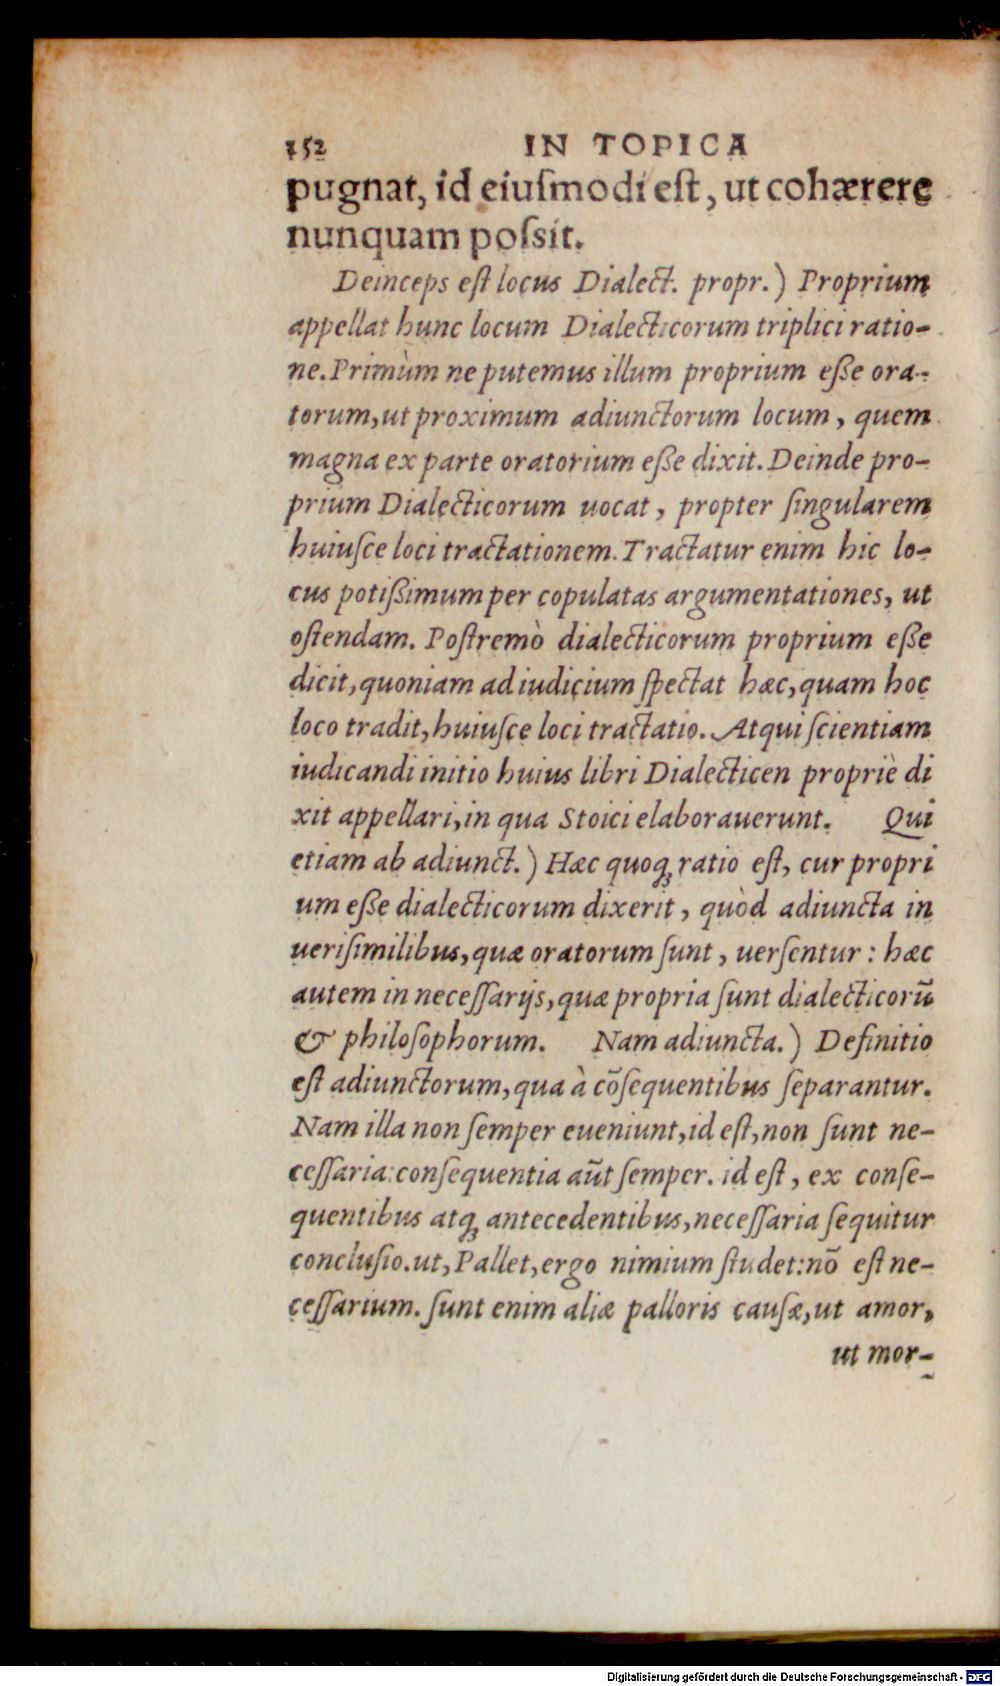 152 IN TOPICA
pugnat, id eiuſmodi eſt, ut cohærere
nunquam poſsit.
Deinceps eſt locus Dialect. propr.) Proprium
appellat hunc locum Dialecticorum triplici ratio-
ne. Primùm ne putemus illum proprium eſſe ora-
torum, ut proximum adiunctorum locum, quem
magna ex parte oratorium eſſe dixit. Deinde pro-
prium Dialecticorum uocat, propter ſingularem
huiuſce loci tractationem. Tractatur enim hic lo-
cus potißimum per copulatas argumentationes, ut
oſtendam. Poſtremò dialecticorum proprium eße
dicit, quoniam ad iudicium ſpectat hæc, quam hoc
loco tradit, huiuſce loci tractatio. Atqui ſcientiam
iudicandi initio huius libri Dialecticen propriè di
xit appellari, in qua Stoici elaborauerunt. Qui
etiam ab adiunct.) Hæc quoqꝫ ratio eſt, cur propri
um eße dialecticorum dixerit, quòd adiuncta in
ueriſimilibus, quæ oratorum ſunt, uerſentur: hæc
autem in neceſſarijs, quæ propria ſunt dialecticorū
& philoſophorum. Nam adiuncta.) Definitio
eſt adiunctorum, qua à cōſequentibus ſeparantur.
Nam illa non ſemper eueniunt, id eſt, non ſunt ne-
ceſſaria: conſequentia aūt ſemper. id eſt, ex conſe-
quentibus atqꝫ antecedentibus, neceſſaria ſequitur
concluſio. ut, Pallet, ergo nimium ſtudet: nō eſt ne-
ceſſarium. ſunt enim aliæ palloris cauſæ, ut amor,
ut mor-
Digitalisierung gefördert durch die Deutsche Forschungsgemeinschaft - DFG